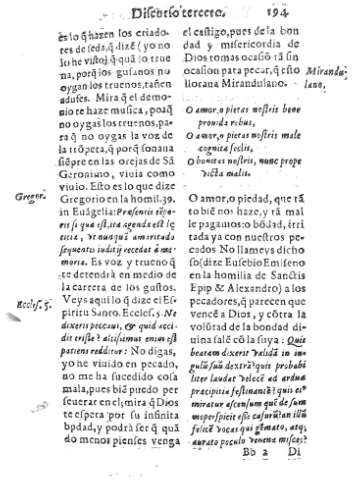 Discurso tercero. 194
es lo q̃ hazen los criado-
res de seda, q̃ dizẽ (yo no
lo he visto) q̃ quãdo true
na, porq̃ los gusanos no
oygan los truenos, tañen
adufes. Mira q̃ el demo-
nio te haze musica, porq̃
no oygas los truenos, pa-
ra q̃ no oygas la voz de
la trõpeta, q̃ porq̃ sonaua
siẽpre en las orejas de Sã
Geronimo, viuia como
viuio. Esto es lo que dize
Gregor. Gregorio en la homil. 39.
in Euãgelia: Præsentis tẽpo-
ris si qua est, ita agenda est lę
titia, vt nunquã amaritudo
sequentis iudicij recedat à me-
moria. Es voz y trueno q̃
te detendrà en medio de
la carrera de los gustos.
Eccles. 5. Veys aqui lo q̃ dize el Es-
piritu Santo. Eccles. 5. Ne
dixeris peccaui, & quid acci-
dit triste? altissimus enim est
patiens redditor: No digas,
yo he viuido en pecado,
no me ha sucedido cosa
mala, pues biẽ puedo per
seuerar en el; mira q̃ Dios
te espera por su infinita
bõdad, y podrà ser q̃ quã
do menos pienses venga
el castigo, pues de la bon
dad y misericordia de
Dios tomas ocasiõ tã sin
ocasion para pecar, q̃ esto
lloraua Mirandulano. Mirandu-
lano.
O amor, o pietas nostris bene
prouida rebus,
O amor, o pietas nostris male
cognita seclis,
O bonitas nostris, nunc prope
victa malis.
O amor, o piedad, que tã
to biẽ nos haze, y tã mal
le pagamos: o bõdad, irri
tada ya con nuestros pe-
cados. No llameys dicho
so (dize Eusebio Emiseno
en la homilia de Sanctis
Epip & Alexandro) a los
pecadores, q̃ parecen que
vence à Dios, y cõtra la
volũtad de la bondad di-
uina salẽ cõ la suya: Quis
beatam dixerit validã in iu-
gulũ suũ dextrã? quis probabi
liter laudat velocẽ ad ardua
præcipitia festinantẽ? quis et
miratur ascensum quẽ de sum
mo perspicit esse casurũ? an illũ
felicẽ vocas qui gẽmato, atq̃
aurato poculo venena miscet?
Bb 2 Di